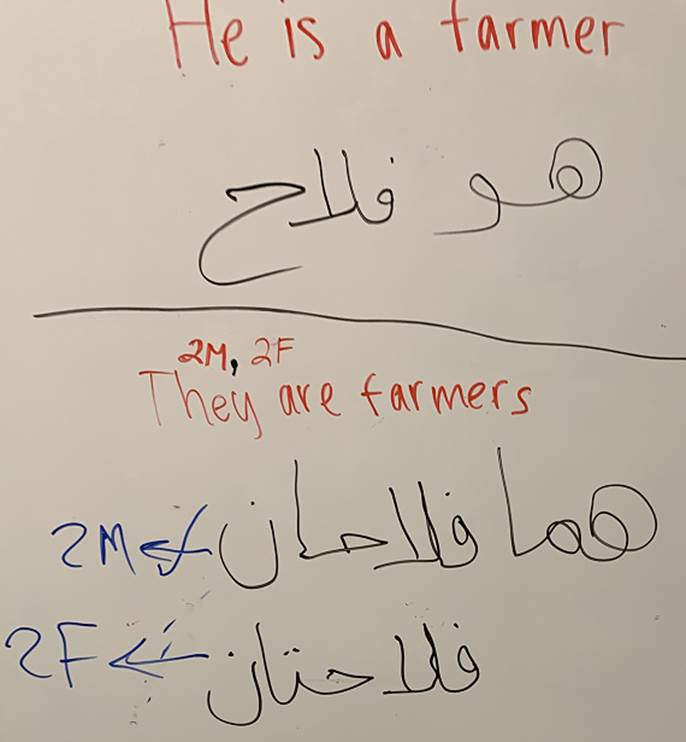 He is a farmer
هو فلاح
2M, 2F
They are farmers
هما فلاحان 2M
فلاحتان 2F